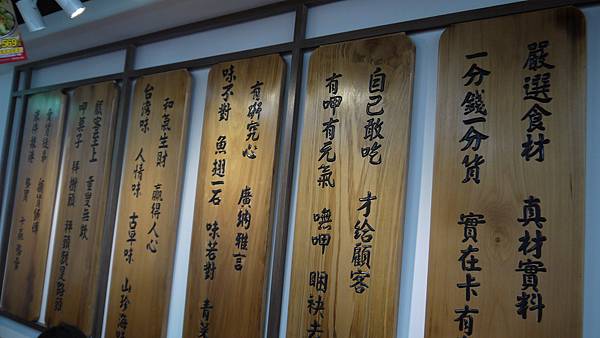 嚴選食材 真材實料
一分錢一分貨 實在卡有
自己敢吃 才給顧客
有呷有元氣 嘸呷 睏袂去
有研究心 廣納雅言
味不對 魚翅一石 味若對 青菜
和氣生財 贏得人心
台灣味 人情味 古早味 山珍海
顧客至上 童叟無欺
呷菓子 拜樹頭
569